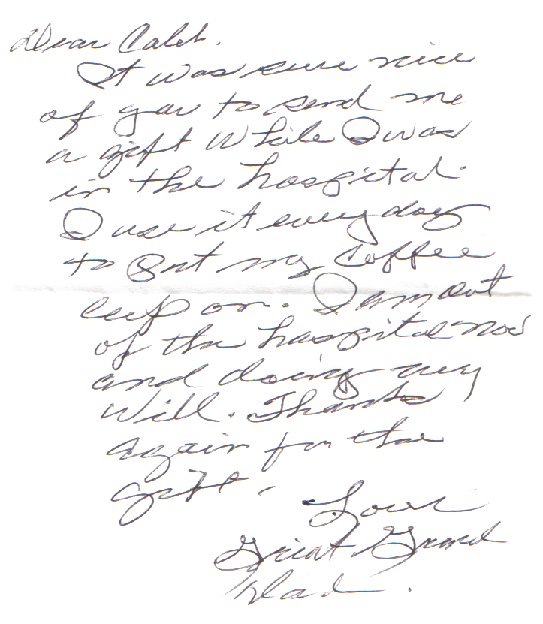 Dear Caleb.
It was sure nice
of you to send me
a gift while I was
in the hospital.
I use it every day
to put my coffee
cup on. I am out
of the hospital now
and doing very
well. Thanks
again for the
gift.
Love
Great Grand
Dad.